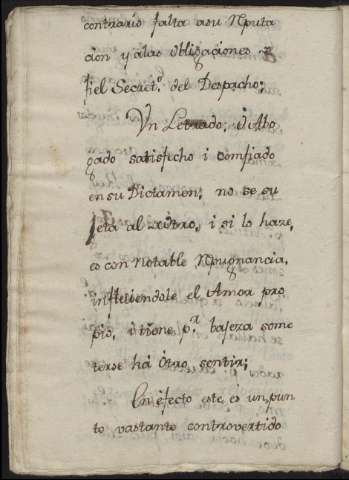 contrario falta a su Reputa
cion y a las obligaciones de
fiel Secret.º del Despacho;
Vn Letrado, ú Abo
gado satisfecho i comfiado
en su Dictamen, no se su
jeta al de otro, i si lo haze,
es con notable Repugnancia,
infiriendole el Amor pro
pio, i tiene p.r bajeza some
terse há ótro sentir;
En efecto este, es un pun
to vastante controvertido